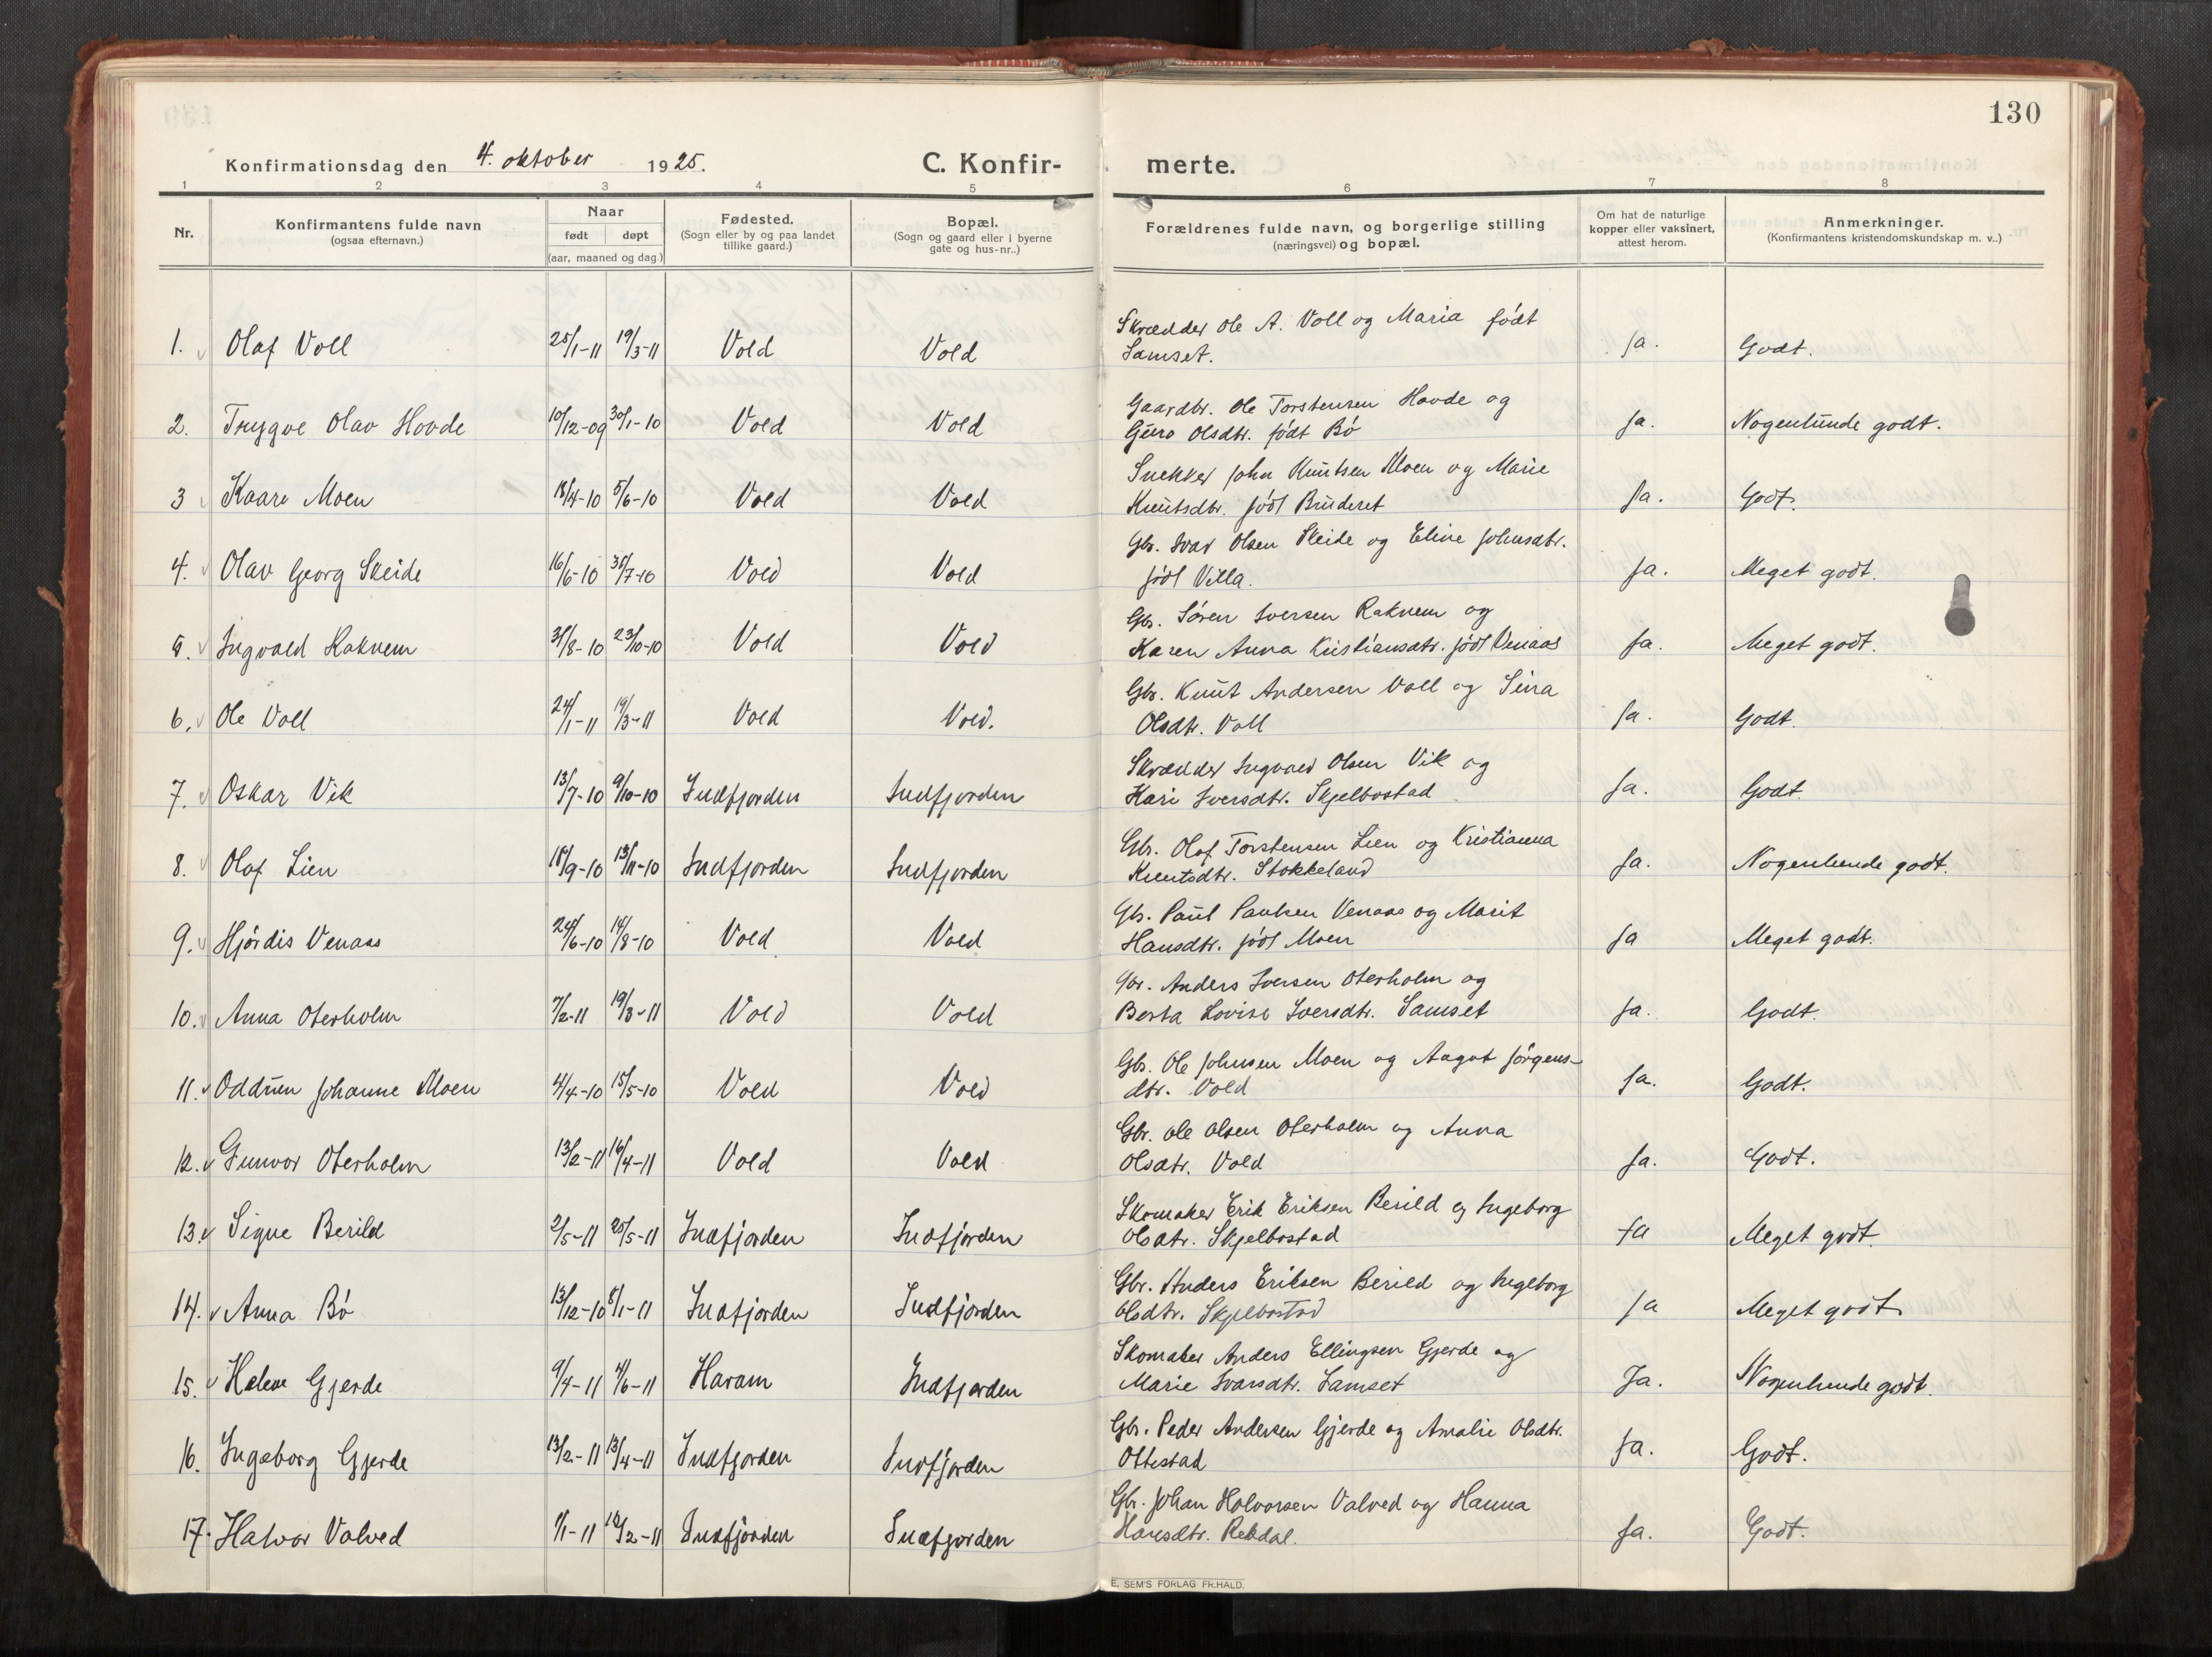 130
Konfirmationsdag den 4. oktober 1925.
C. Konfir-
merte.
1 2 3 4 5 6 7 8
Nr.
Konfirmantens fulde navn
(ogsaa efternavn.)
Naar
født døpt
(aar, maaned og dag.)
Fødested.
(Sogn eller by og paa landet
tillike gaard.)
Bopæl.
(Sogn og gaard eller i byerne
gate og hus-nr..)
Forældrenes fulde navn, og borgerlige stilling
(næringsvei) og bopæl.
Om hat de naturlige
kopper eller vaksinert,
attest herom.
Anmerkninger.
(Konfirmantens kristendomskundskap m. v..)
Skrædder Ole A. Voll og Maria født
1. Olaf Voll 25/1-11 19/3-11 Vold Vold Samset. Ja. Godt.
Gaardbr. Ole Torstensen Hovde og
2. Trygve Olav Hovde 10/12-09 30/1-10 Vold Vold Guro Olsdtr. født Bö Ja. Nogenlunde godt.
Snekker John Knutsen Moen og Marie
3 Kaare Moen 18/4-10 5/6-10 Vold Vold Knutsdtr. född Bruderet Ja. Godt.
Gbr. Ivar Olsen Skeide og Eline Johnsdtr.
4. Olav Georg Skeide 16/6-10 31/7-10 Vold Vold född Villa. Ja. Meget godt.
Gbr. Sören Iversen Raknem og
5. Ingvald Raknem 31/8-10 23/10-10 Vold Vold Karen Anna Kristiansdtr. född Venaas Ja. Meget godt.
Gbr. Knut Andersen Voll og Sina
6. Ole Voll 24/1-11 19/3-11 Vold Vold. Olsdtr. Voll Ja. Godt.
Skrædder Ingvald Olsen Vik og
7. Oskar Vik 13/7-10 9/10-10 Indfjorden Indfjorden Kari Iversdtr. Skjelbostad Ja. Godt.
Gbr. Olaf Torstensen Lien og Kristianna
8. Olaf Lien 18/9-10 13/11-10 Indfjorden Indfjorden Knutsdtr. Stokkeland Ja. Nogenlunde godt.
Gb. Paul Paulsen Venaas og Marit
9. Hjördis Venaas 24/6-10 14/8-10 Vold Vold Hansdtr. född Moen Ja Meget godt.
Gbr. Anders Iversen Oterholm og
10. Anna Oterholm 7/2-11 19/3-11 Vold Vold Berta Lovise Iversdtr. Samset Ja. Godt.
Gbr. Ole Johnsen Moen og Aagot Jörgens-
11. Oddrun Johanne Moen 4/4-10 15/5-10 Vold Vold dtr. Vold Ja. Godt.
Gbr. Ole Olsen Oterholm og Anna
12. Gunvor Oterholm 13/2-11 16/4-11 Vold Vold Olsdtr. Vold Ja. Godt.
Skomaker Erik Eriksen Berild og Ingeborg
13. Signe Berild 2/5-11 25/5-11 Indfjorden Indfjorden Olsdtr. Skjelbostad Ja Meget godt.
Gbr. Anders Eriksen Berild og Ingeborg
14. Anna Bö 13/12-10 8/1-11 Indfjorden Indfjorden Olsdtr. Skjelbostad Ja Meget godt
Skomaker Anders Ellingsen Gjerde og
15. Helene Gjerde 9/4-11 4/6-11 Haram Indfjorden Marie Ivarsdtr. Samset Ja. Nogenlunde godt.
Gbr. Peder Andersen Gjerde og Amalie Olsdtr.
16. Ingeborg Gjerde 13/2-11 13/4-11 Indfjorden Indfjorden Ottestad Ja. Godt.
Gbr. Johan Halvorsen Valved og Hanna
17. Halvor Valved 1/1-11 12/2-11 Indfjorden Indfjorden Hansdtr. Rekdal. Ja. Godt.
E. SEM'S FORLAG FR.HALD.